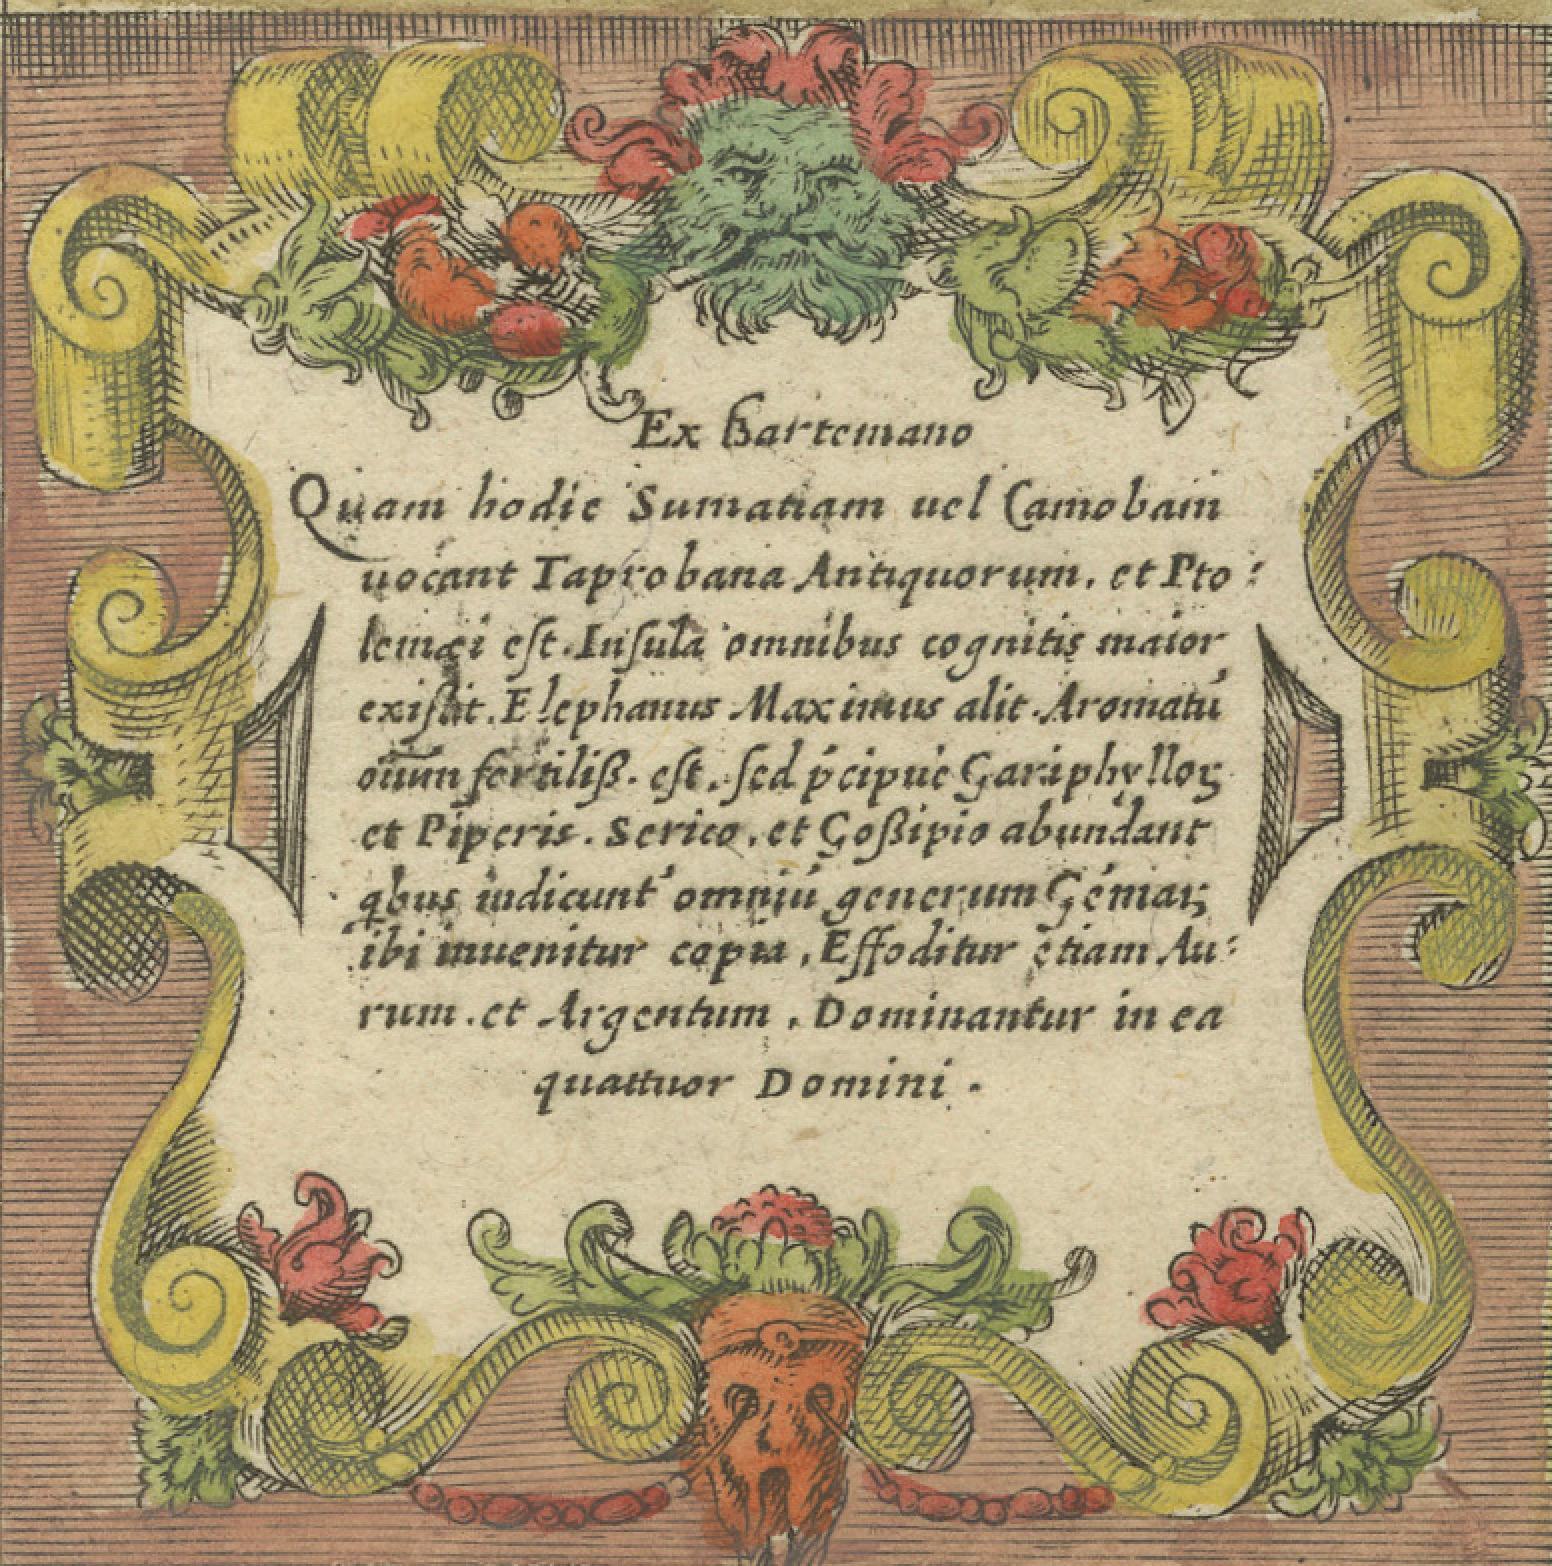 Ex Bartemano
Quam hodie Sumatiam uel Camobain
uocant Taprobana Antiquorum, et Pto:
lemæi est. Insula omnibus cognitis maior
existit. Elephanus Maximus alit. Aromatū
ouum fertiliß. est, sed p̄cipue Gariphylloꝝ
et Piperis. Serico, et Goßipio abundant
qbus iudicunt omniū generum Gēmaꝝ
ibi inuenitur copia, Effoditur etiam Au:
rum. et Argentum, Dominantur in ea
quattuor Domini.